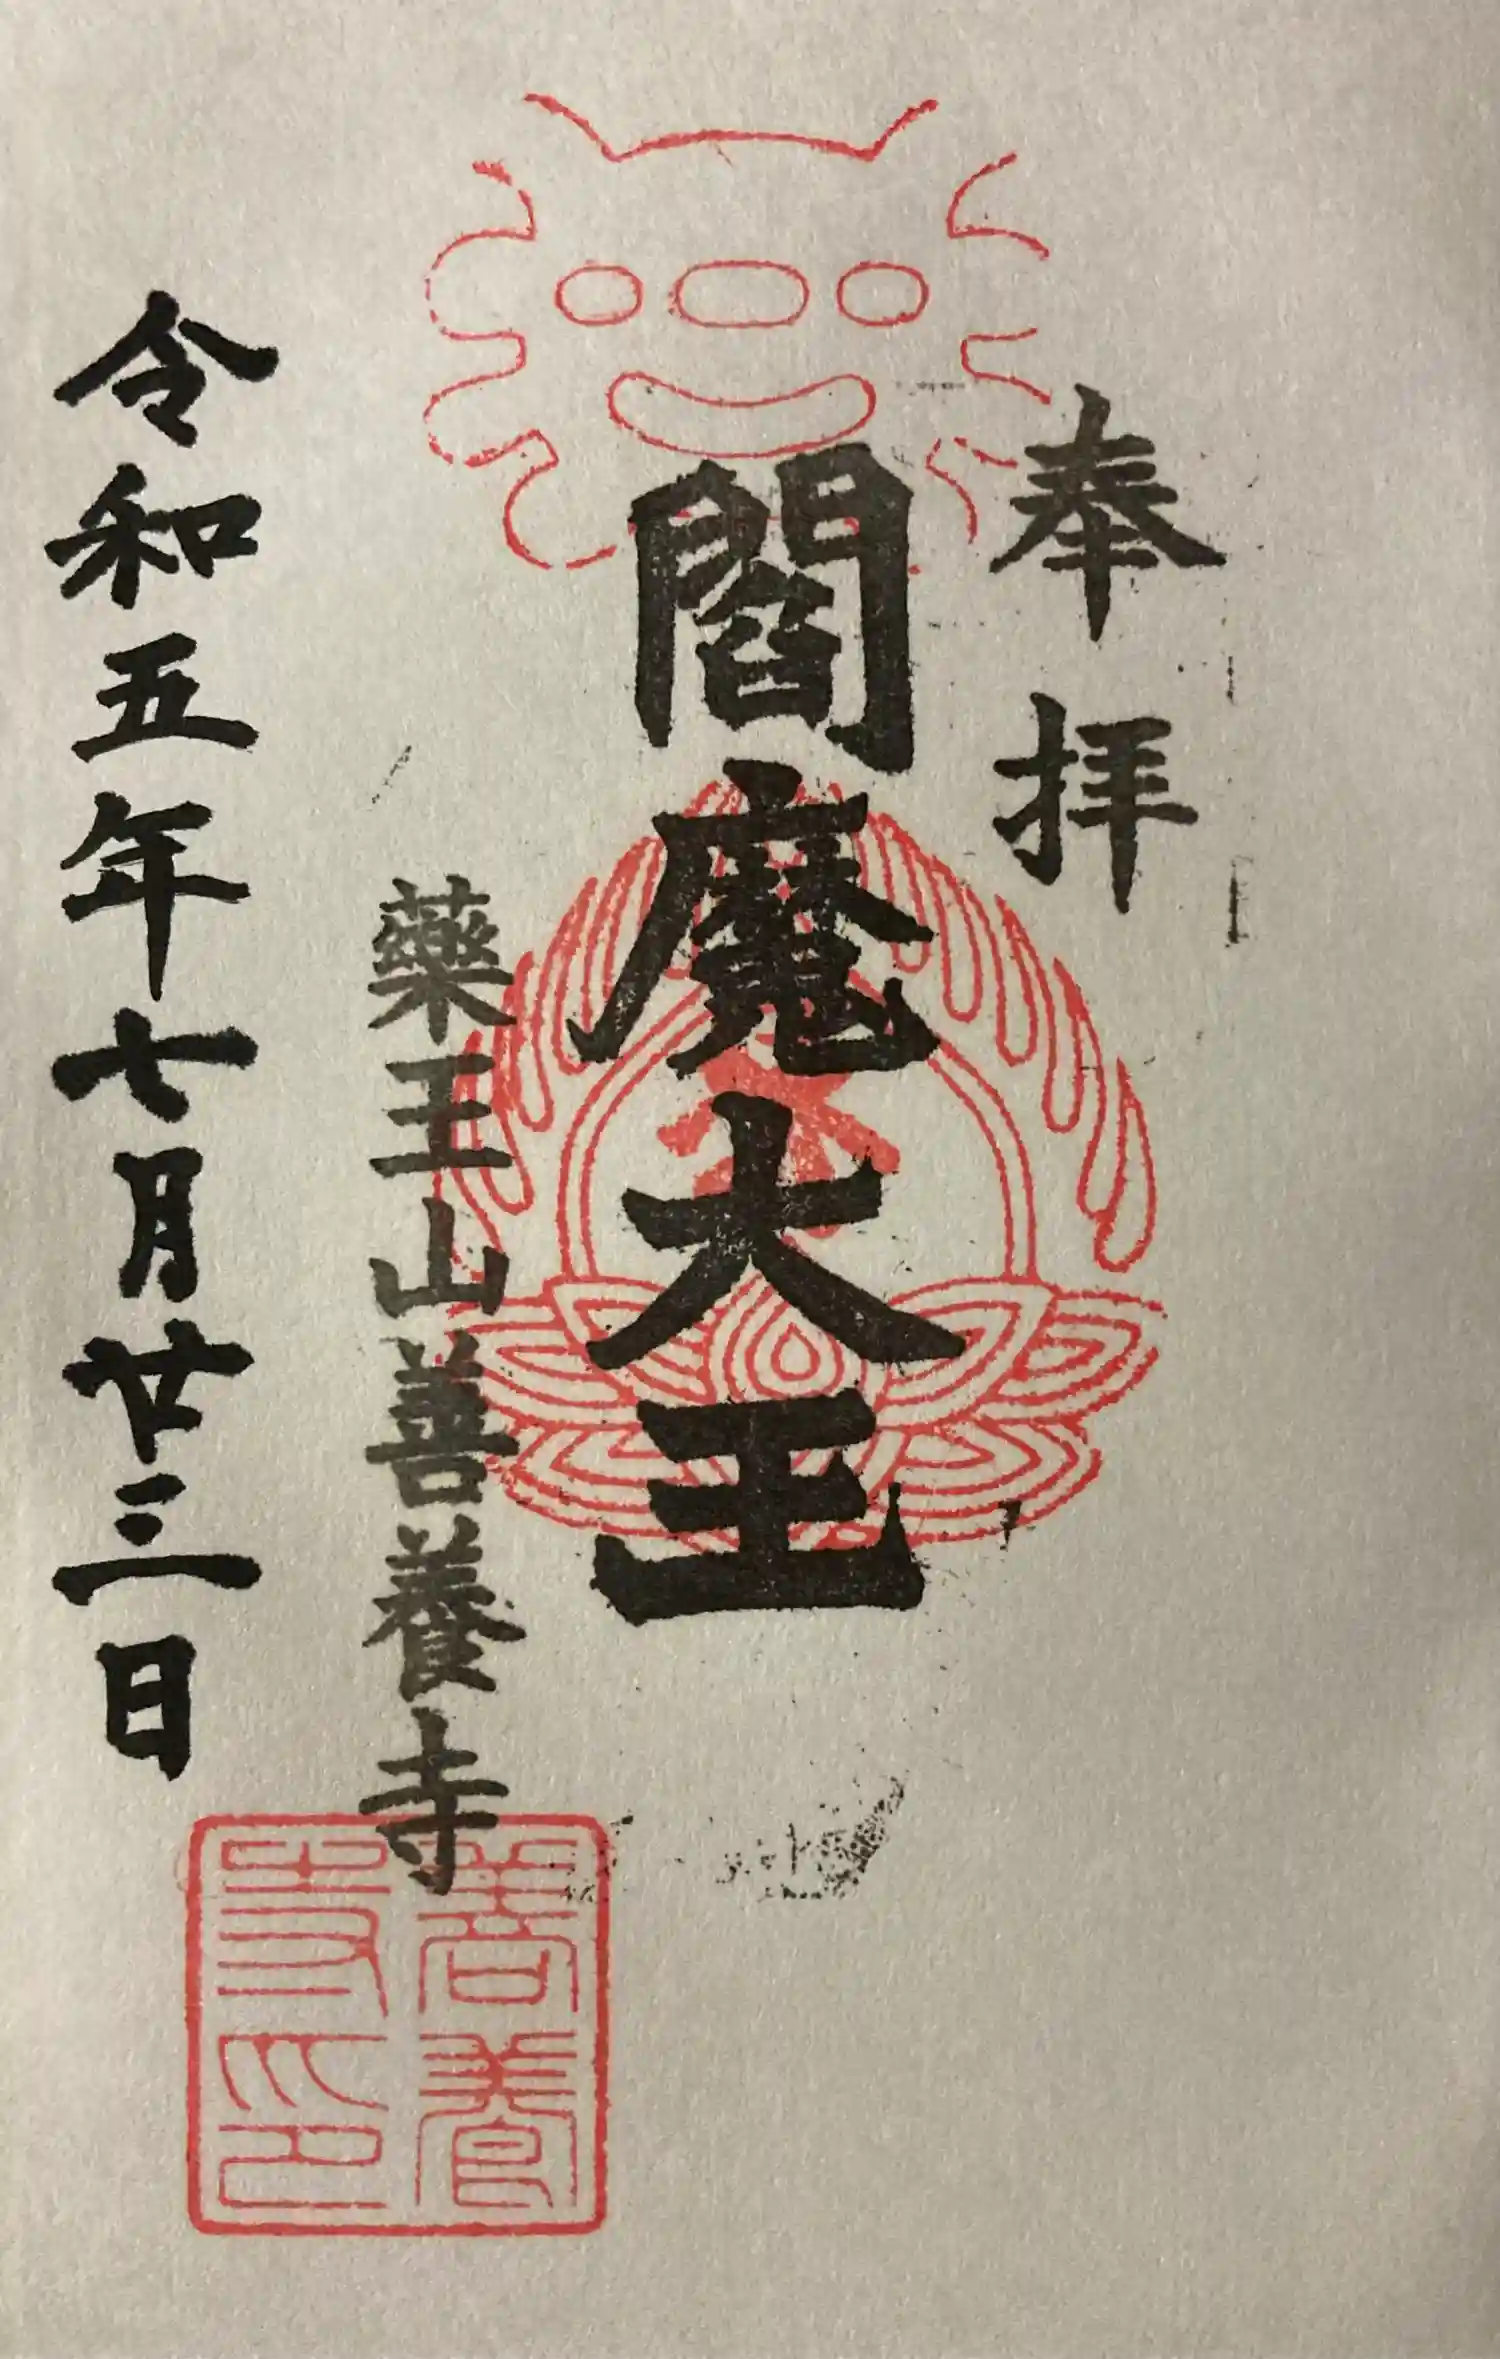 奉拝
閻魔大王
藥王山善養寺
令和五年七月廿三日
善養
寺印